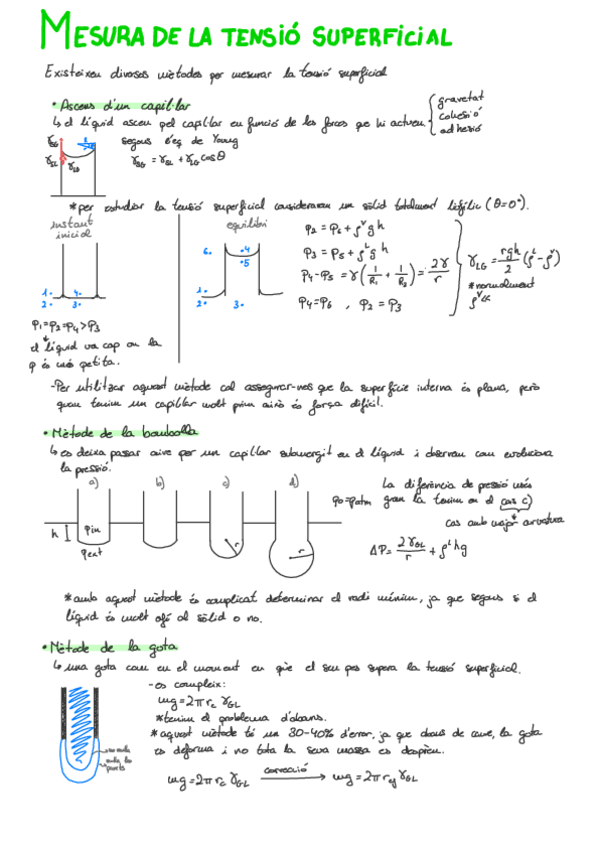 MESURA DE LA TENSIÓ SUPERFICIAL
Existeixen diverses mètodes per mesurar la tensió superficial
• Ascens d'un capil·lar
↳ el líquid ascen pel capil·lar en funció de les forces que hi actuen. { gravetat
cohesió
adhesió
segons l'eq. de Young
γSG = γSL + γLG cosθ
γSG
γSL
γLG
*per estudiar la tensió superficial considerarem un sòlid totalment liòfilic (θ=0°).
instant
inicial
equilibri
1.
2.
4.
3.
6.
•4
•5
1.
2.
3.
P2 = P6 + ρᵛgh
P3 = P5 + ρᴸgh
P4-P5 = γ(1/R1 + 1/R2) = 2γ/r
P4=P6 , P2=P3
γLG = rgh/2 (ρᴸ-ρᵛ)
*normalment
ρᵛ<<
P1=P2=P4>P3
el líquid va cap on la
p és més petita.
-Per utilitzar aquest mètode cal assegurar-nos que la superfície interna és plana, però
quan tenim un capil·lar molt prim això és força difícil.
• Mètode de la bombolla
↳ es deixa passar aire per un capil·lar submergit en el líquid i observem com evoluciona
la pressió.
a)
b)
c)
d)
h
Pin
Pext
r
r
P0=Patm
La diferència de pressió més
gran la tenim en el cas c)
cas amb major curvatura
ΔP = 2γGL/r + ρᴸhg
*amb aquest mètode és complicat determinar el radi mínim, ja que segons si el
líquid és molt afí al sòlid o no.
• Mètode de la gota
↳ una gota cau en el moment en què el seu pes supera la tensió superficial.
-es compleix:
mg=2πrc γGL
*tenim el problema d'abans.
*aquest mètode té un 30-40% d'error, ja que abans de caure, la gota
es deforma i no tota la seva massa es desprèn.
no mulla
mulla les
parets
mg=2πrc γGL
correcció
mg=2πref γGL